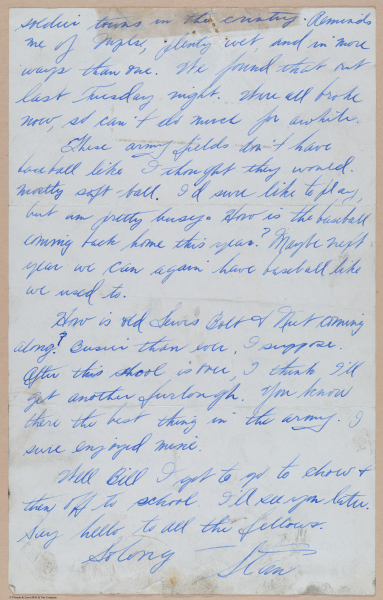 soldier towns in the country. Reminds
me of Mpls, plenty wet, and in more
ways than one. We found that out
last Tuesday night. Were all broke
now, so can't do much for awhile.
These army fields don't have
baseball like I thought they would.
mostly soft-ball. I'd sure like to play,
but am pretty busy. How is the baseball
coming back home this year? Maybe next
year we can again have baseball like
we used to.
How is old Lewis Bolt & Nut coming
along? Busier than ever, I suppose.
After this school is over, I think I'll
get another furlough. You know
there the best thing in the army. I
sure enjoyed mine.
Well Bill I got to go to chow &
then off to school. I'll see you later.
Say hello to all the fellows.
So long Stan